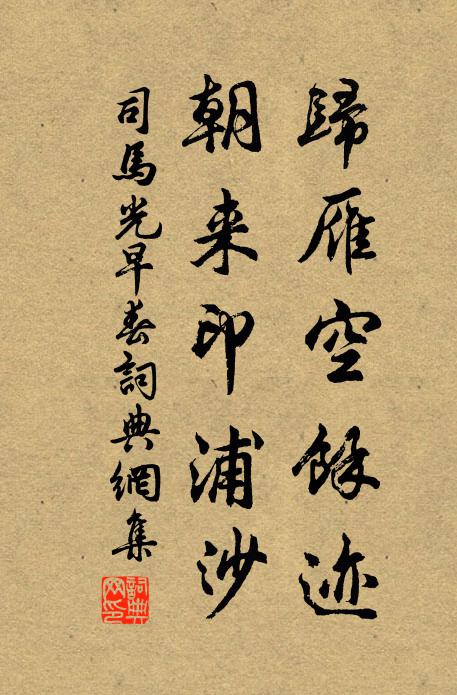 歸雁空餘迹
朝来印浦沙
司馬光早春詞典網集
詞典网印